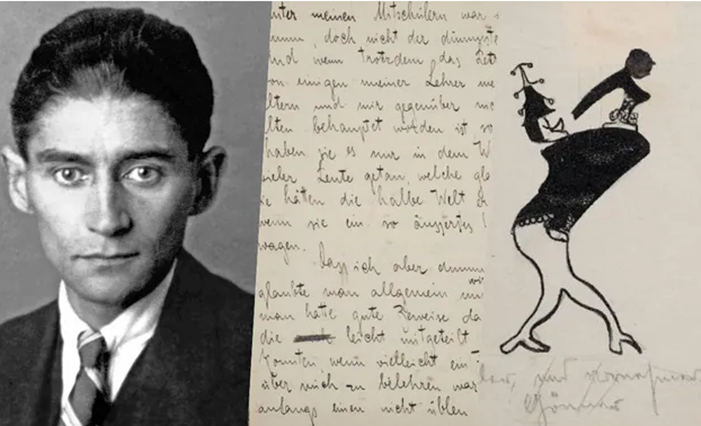 unter meinen Mitschülern war
dumm, doch nicht der dümmste
und wenn trotzdem das Letz
von einigen meiner Lehrer me
ltern und mir gegenüber
lten behauptet worden ist so
haben sie es nur in dem W
vieler Leute getan, welche gla
ie hätten die halbe Welt
wenn sie ein so
wagen.
Dass ich aber dumm
glaubte man allgemein
man hatte gute Beweise da
die leicht mitgeteilt
konnten wenn vielleicht ein
über mich zu belehren war
anfangs einen nicht üblen
und